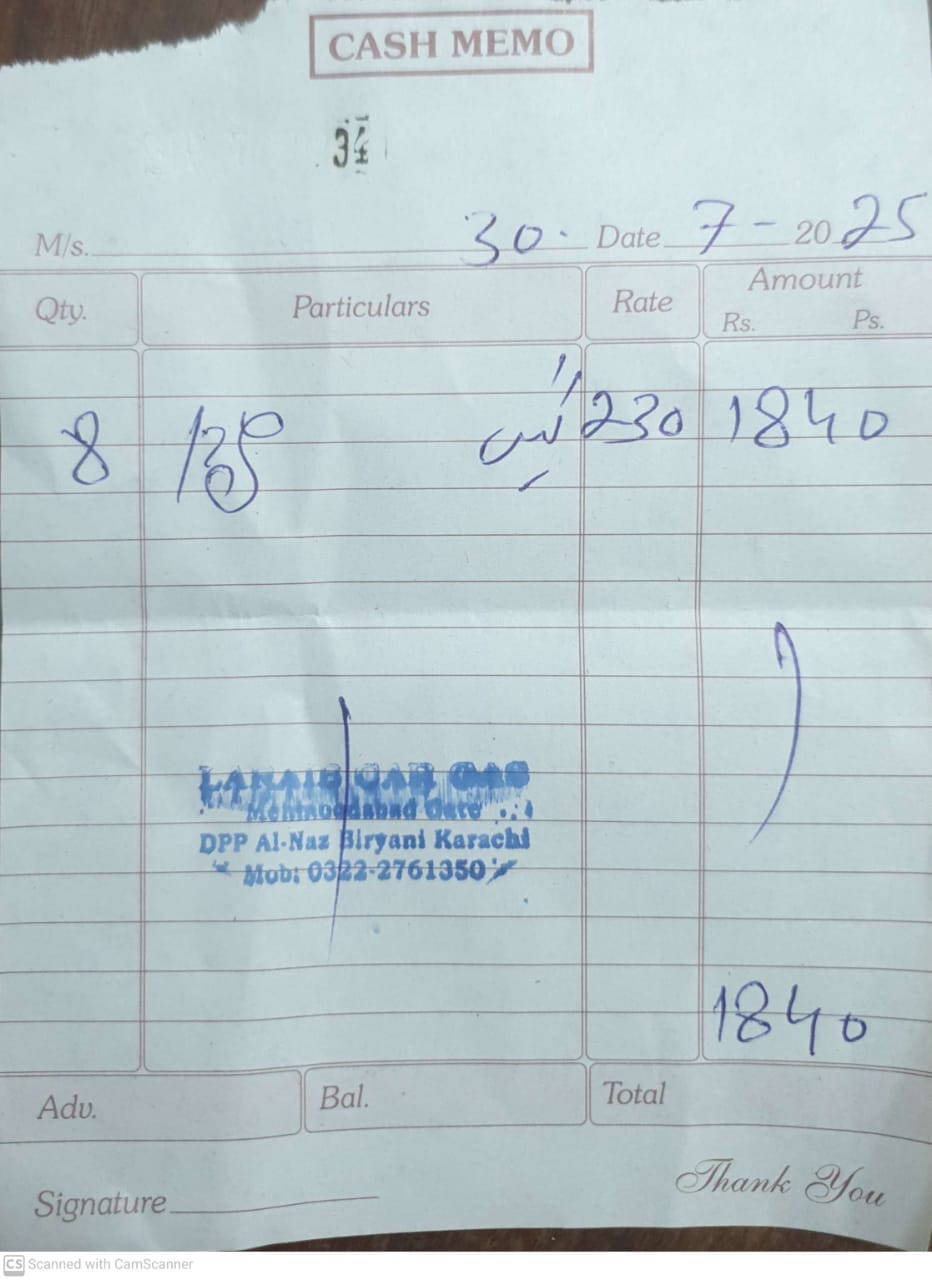 CASH MEMO
34
M/s. 30. Date 7 - 2025
Qty. Particulars Rate Amount
Rs. Ps.
8 230 1840
GAS
DPP Al-Naz Biryani Karachi
Mob: 0322-2761350
1840
Adv. Bal. Total
Thank You
Signature
CS Scanned with CamScanner